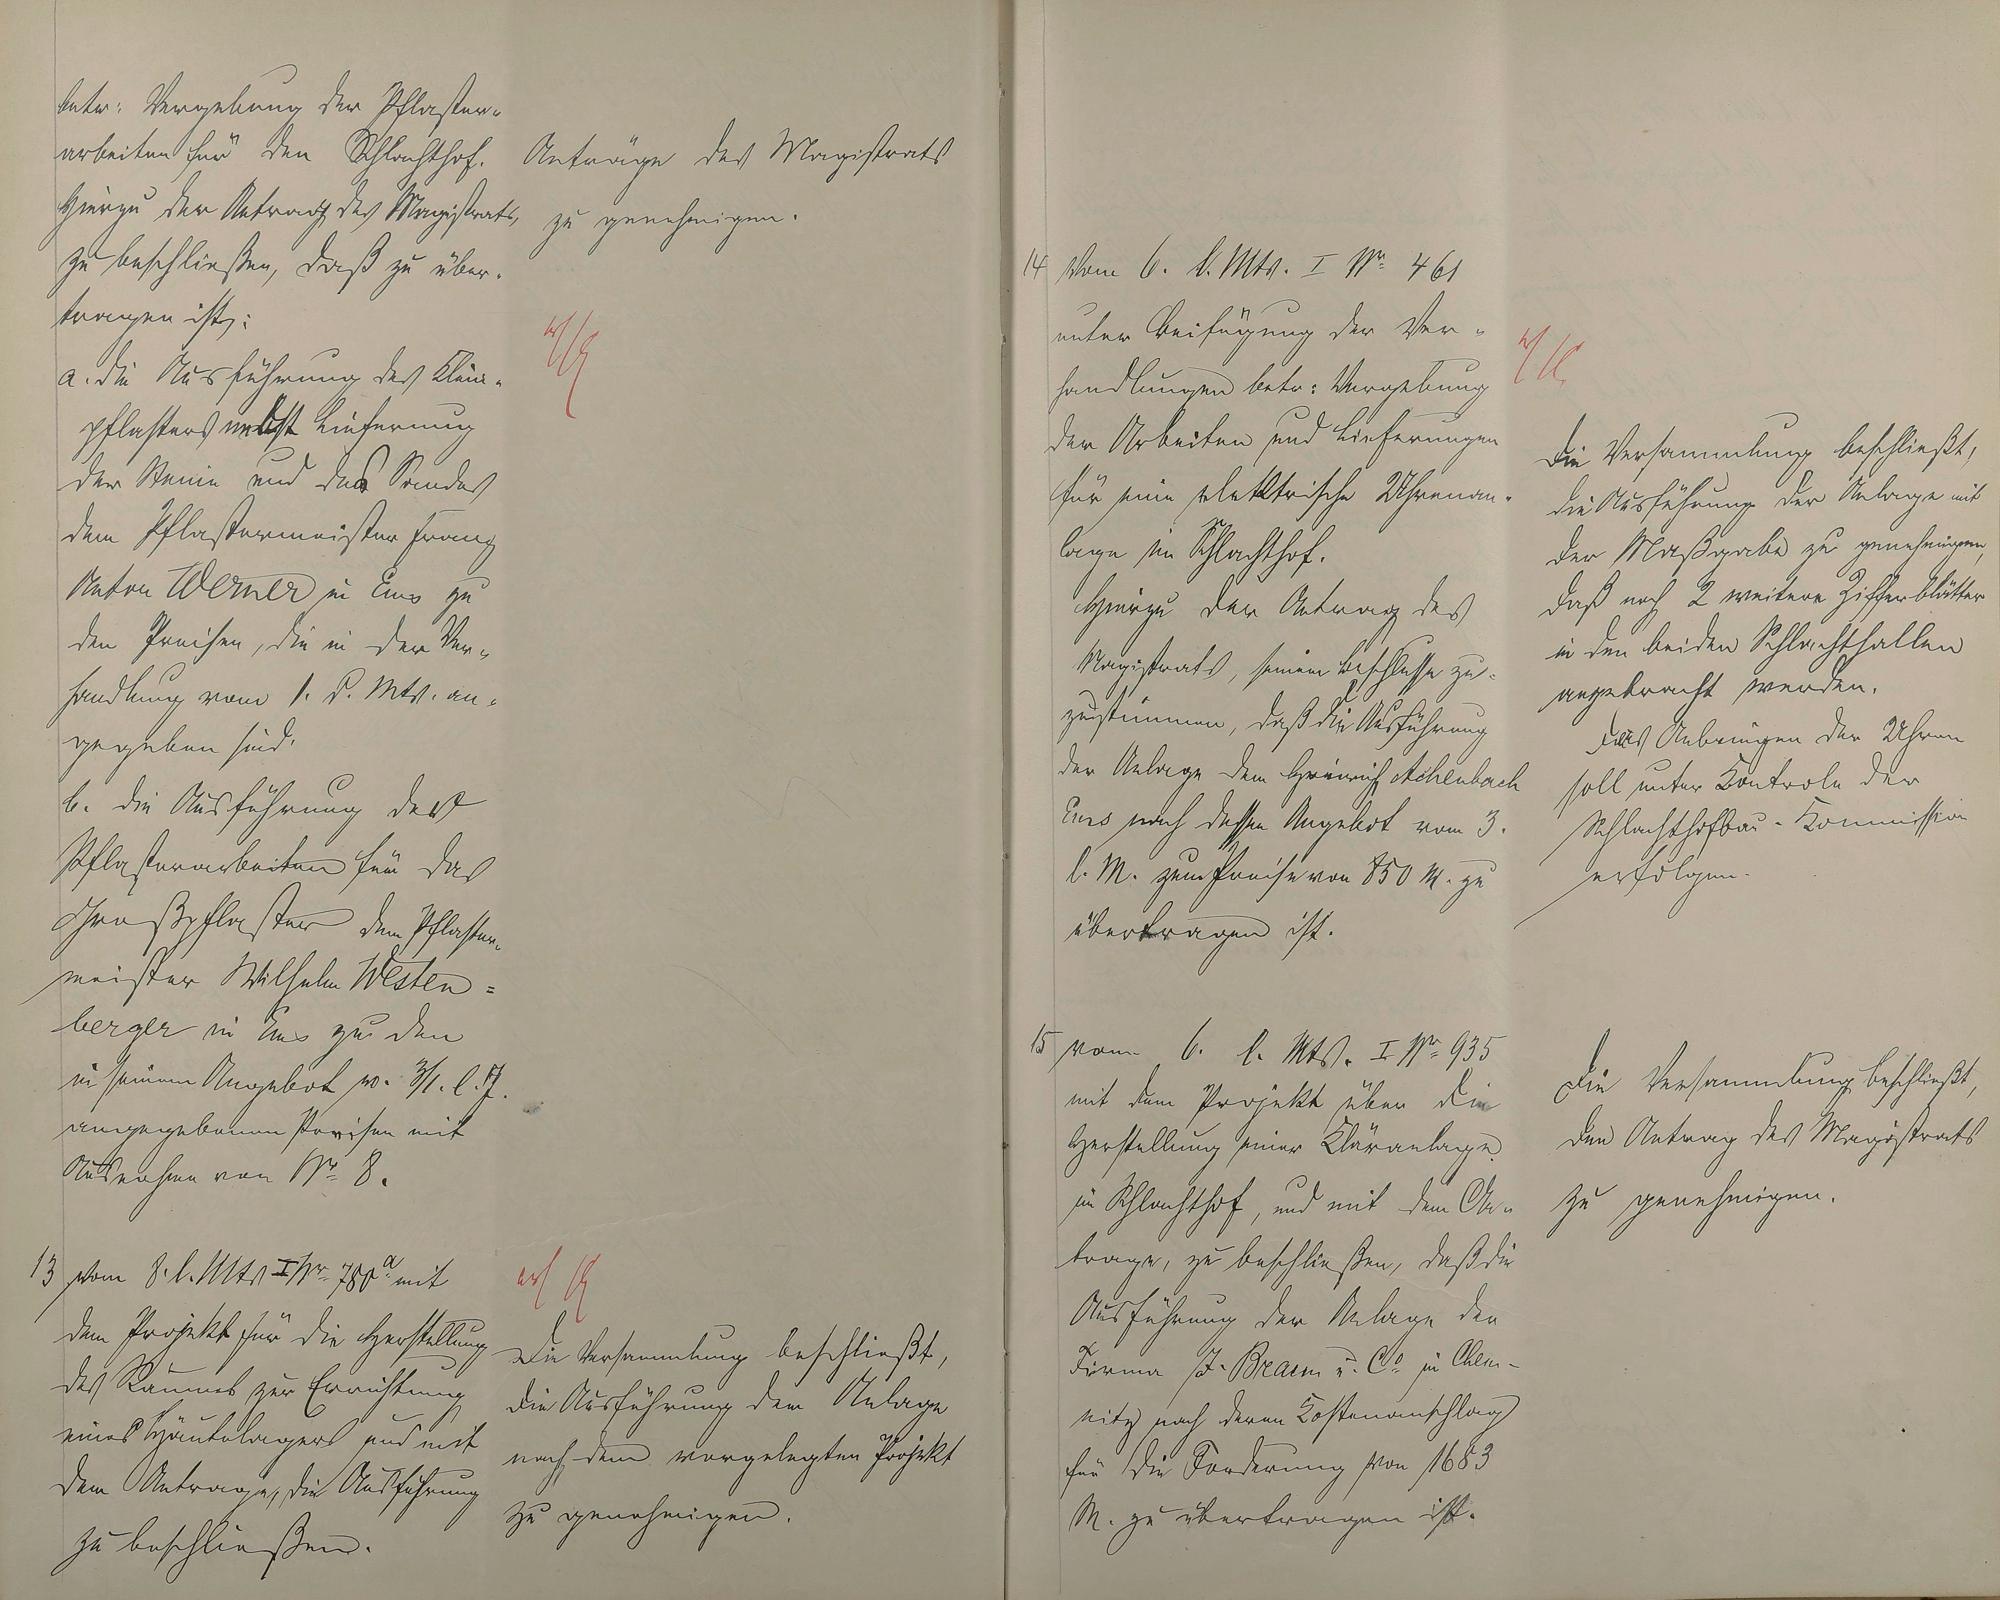 betr: Vergebung der Pflaster-
arbeiten für den Schlachthof.
Hierzu der Antrag des Magistrats,
zu beschließen, daß zu über-
tragen ist:
a. die Ausführung des Klein-
pflasters nebst Lieferung
der Steine und des Sandes
dem Pflastermeister Franz
Anton Werner in Ems zu
den Preisen, die in der Ver-
handlung vom 1. d. Mts. an-
gegeben sind.
b. die Ausführung der
Pflasterarbeiten für das
Großpflaster dem Pflaster-
meister Wilhelm Westen=
berger in Ems zu den
in seinem Angebot v. 3/1. l. J.
angegebenen Preisen mit
Ausnahme von No 8.
Anträge des Magistrats
zu genehmigen.
13 vom 8. l. Mts I Nr. 780a mit
dem Projekt für die Herstellung
des Raumes zur Errichtung
eines Häutelagers und mit
dem Antrage, die Ausführung
zu beschließen.
Die Versammlung beschließt,
die Ausführung der Anlage
nach dem vorgelegten Projekt
zu genehmigen.
14 Vom 6. l. Mts. I Nr. 461
unter Beifügung der Ver-
handlungen betr: Vergebung
der Arbeiten und Lieferungen
für eine elektrische Uhrenan-
lage im Schlachthof.
Hierzu der Antrag des
Magistrats, seinem Beschlusse zu-
zustimmen, daß die Ausführung
der Anlage dem Heinrich Achenbach
Ems nach dessen Angebot vom 3.
l. M. zum Preise von 850 M. zu
übertragen ist.
Die Versammlung beschließt,
die Ausführung der Anlage mit
der Maßgabe zu genehmigen,
daß noch 2 weitere Zifferblätter
in den beiden Schlachthallen
angebracht werden.
Das Anbringen der Uhren
soll unter Kontrole der
Schlachthofbau-Kommission
erfolgen.
15 vom 6. l. Mts. I Nr. 935
mit dem Projekt über die
Herstellung einer Kläranlage
im Schlachthof, und mit dem An-
trage, zu beschließen, daß die
Ausführung der Anlage der
Firma J. Braun u. Co in Chem-
nitz nach deren Kostenanschlag
für die Forderung von 1683
M. zu übertragen ist.
Die Versammlung beschließt,
den Antrag des Magistrats
zu genehmigen.